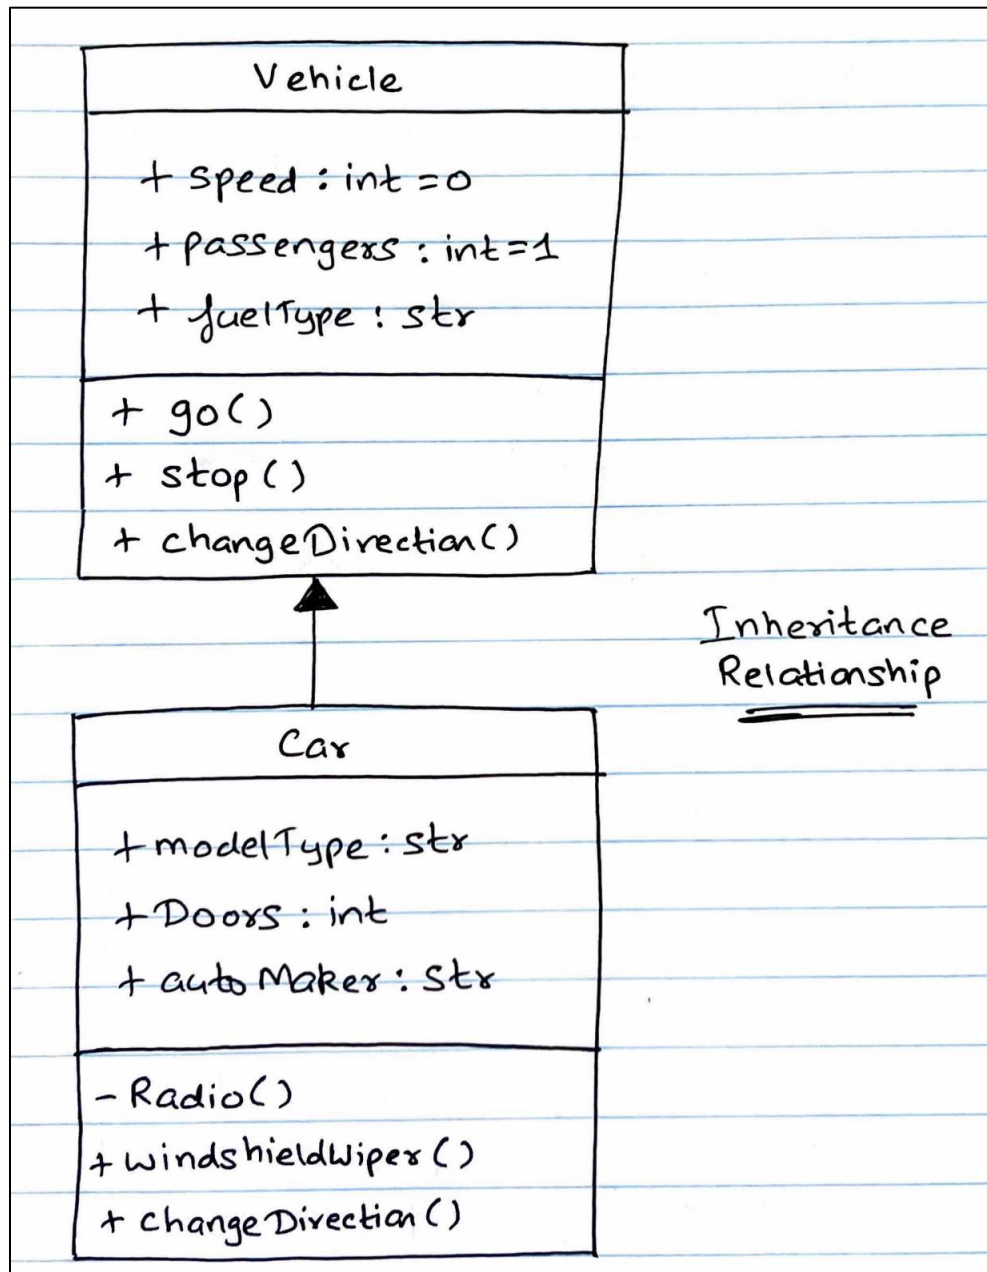 Vehicle
+ speed : int = 0
+ passengers : int = 1
+ fuelType : str
+ go()
+ stop()
+ changeDirection()
Inheritance
Relationship
Car
+ modelType : str
+ Doors : int
+ autoMaker : str
- Radio()
+ windshieldWiper()
+ changeDirection()